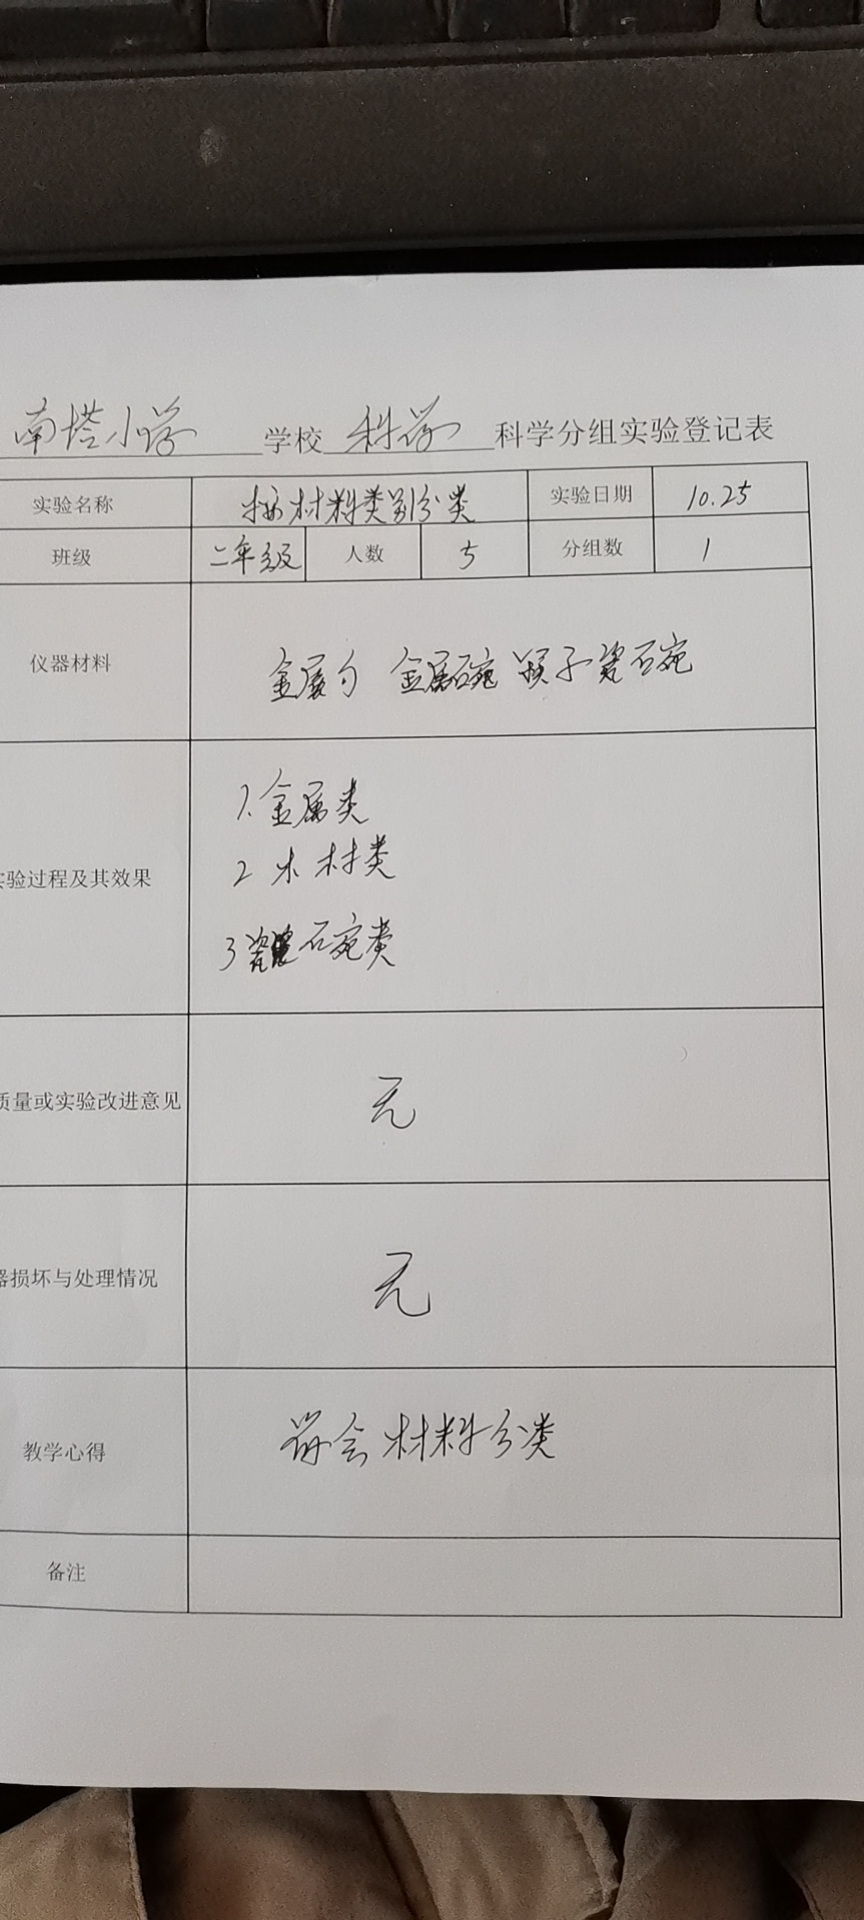 南塔小学 学校 科学 科学分组实验登记表
实验名称 按材料类别分类 实验日期 10.25
班级 二年级 人数 5 分组数 1
仪器材料 金属勺 金属碗 筷子 瓷碗
1.金属类
2 木材类
验过程及其效果
3 瓷碗类
质量或实验改进意见 无
损坏与处理情况 无
教学心得 学会材料分类
备注